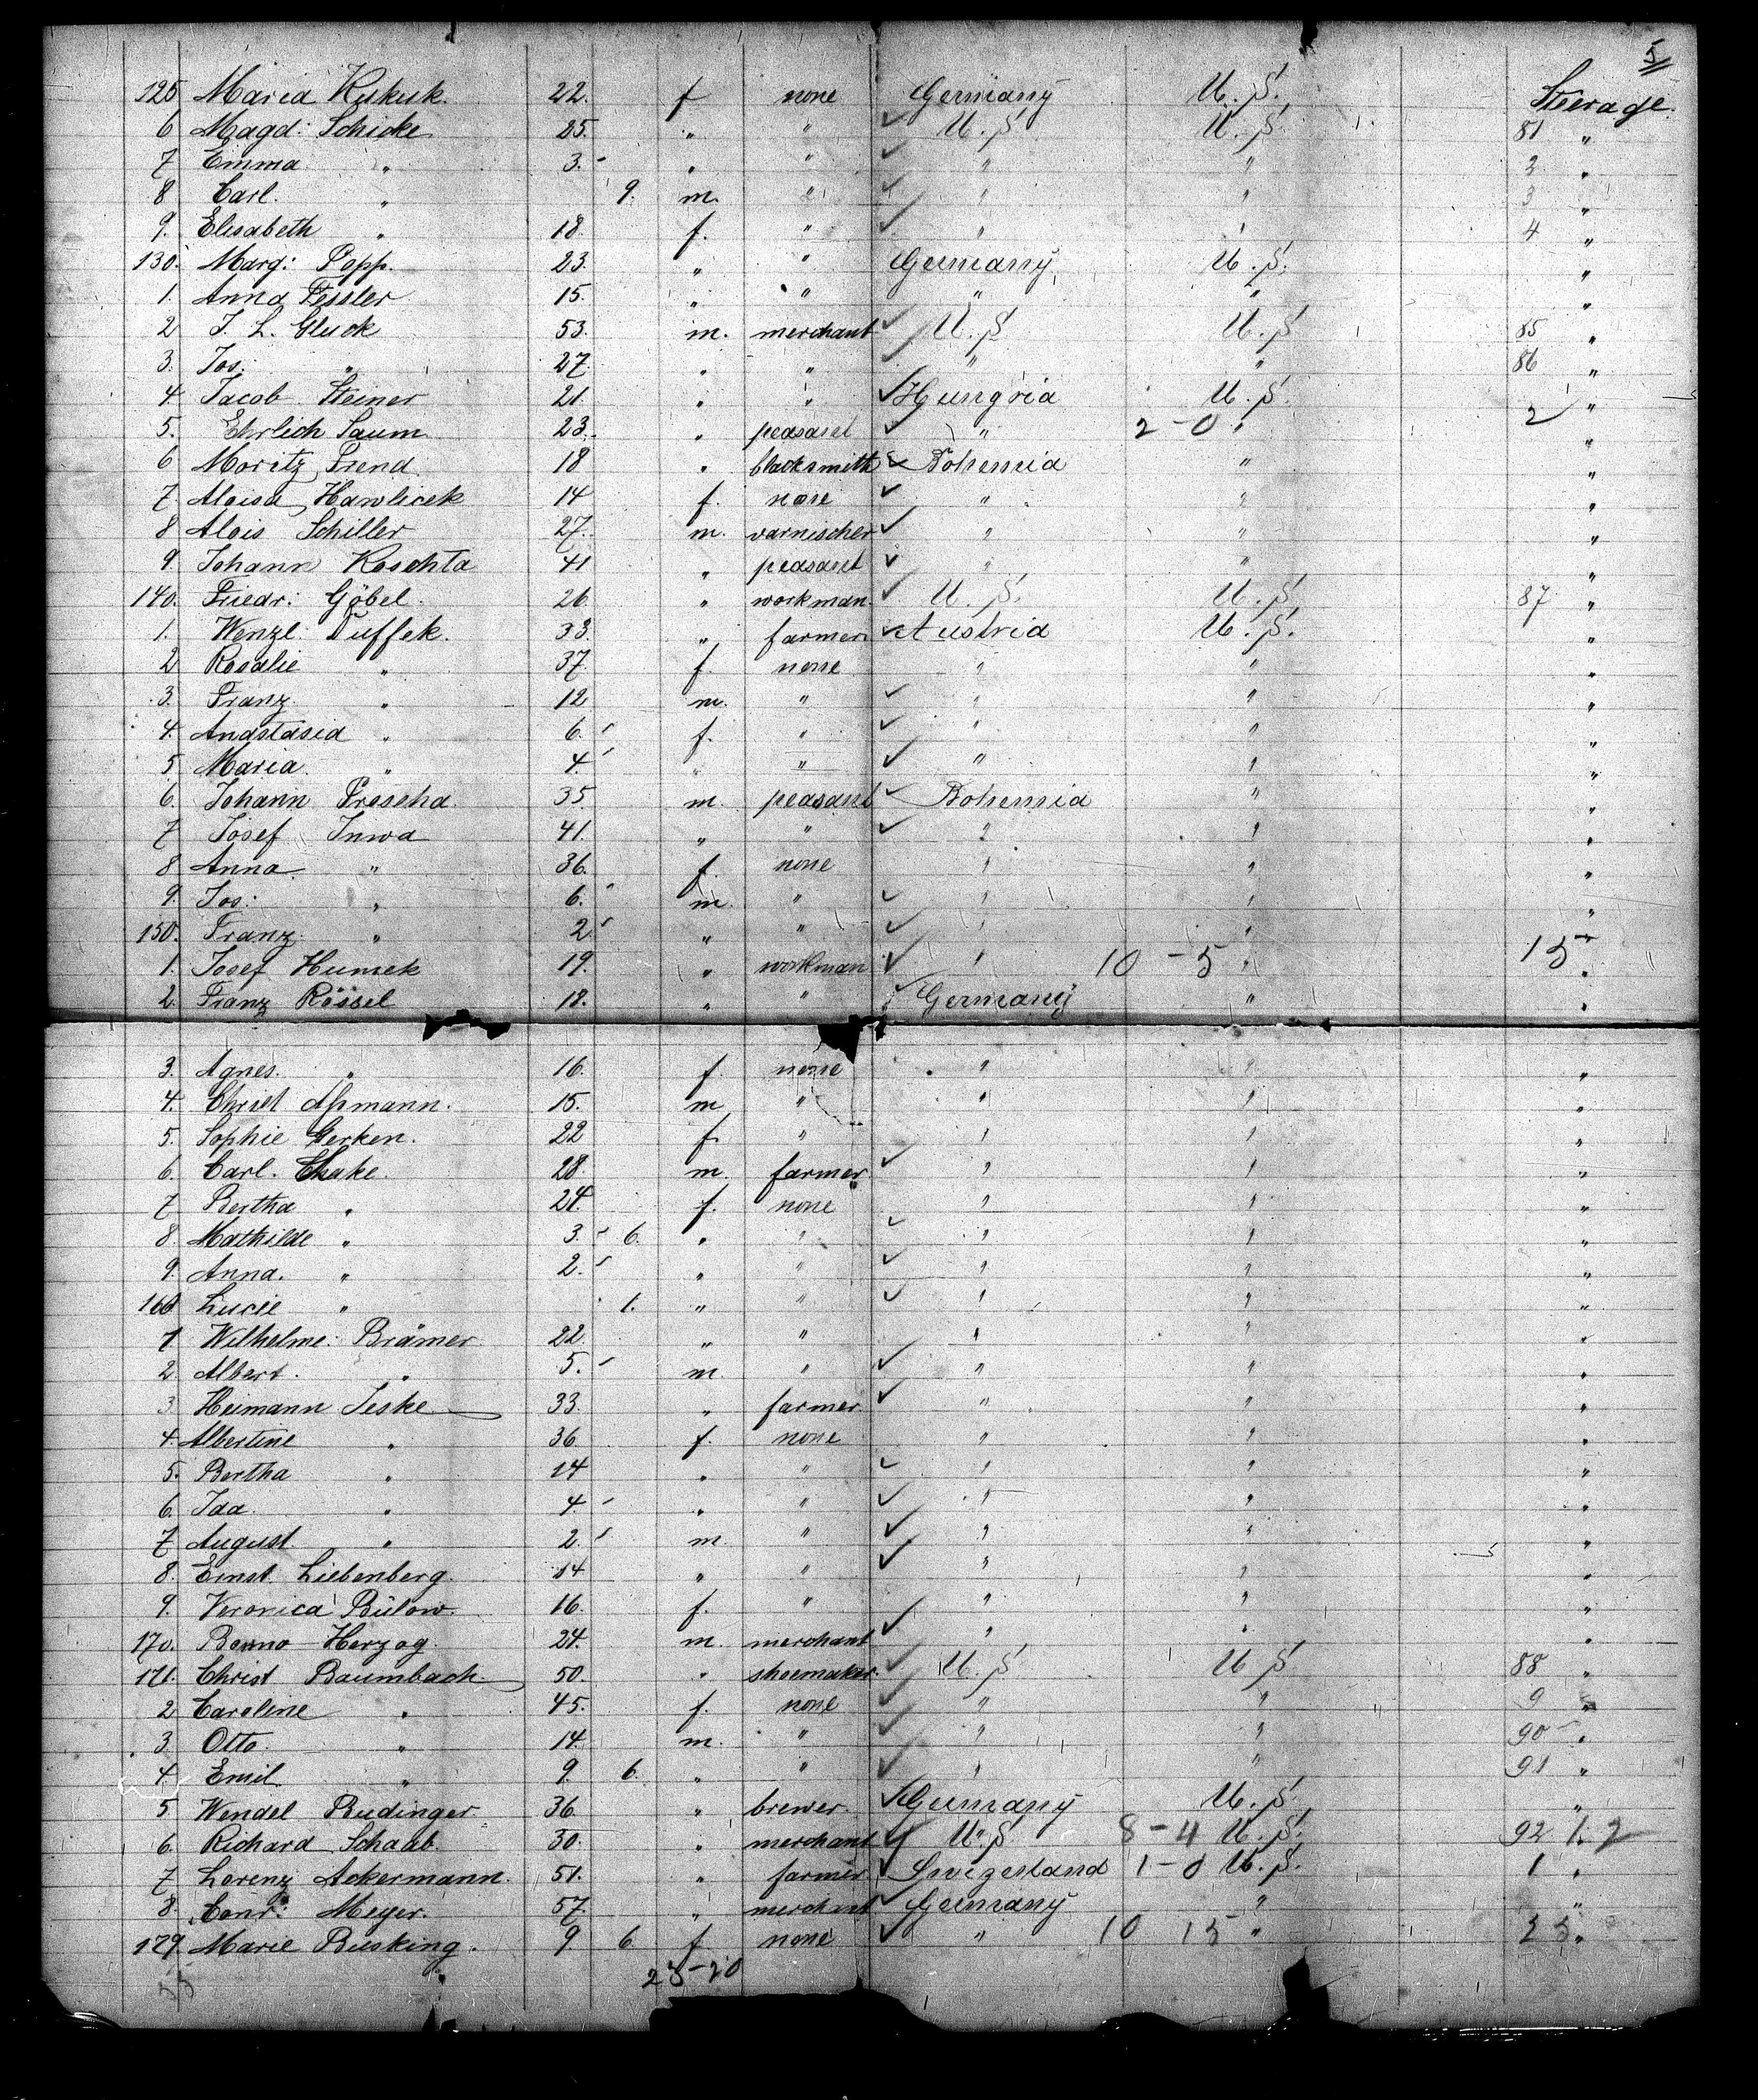 5
125 Maria Kukuk. 22. f none Germany U. S. Steerage.
6 Magd: Schicke 25. " " ✓ U. S. U. S. 81 "
7 Emma " 3. " " ✓ " " 2 "
8 Carl. " 9. m. " ✓ " " 3 "
9. Elisabeth " 18. f. " ✓ " " 4 "
130. Marg: Popp. 23. " " Germany, U. S. "
1. Anna Fessler 15. " " " " "
2 J. L. Gluck 53. m. merchant ✓ U. S U. S 85 "
3. Jos: " 27. " " ✓ " " 86 "
4 Jacob Steiner 21. " " ✓ Hungria U. S. "
5. Ehrlich Saum 23. " peasant ✓ " 2 - 0 " 2 "
6 Moritz 18 " blacksmith ✓ Bohemia " "
7 Aloisa Hawlicek 14 f. none ✓ " " "
8 Alois Schiller 27. m. varnischer ✓ " " "
9 Johann Koschta 41 " peasant ✓ " " "
140. Friedr: Göbel. 26. " workman ✓ U. S. U. S. 87 "
1. Wenzl Duffek. 33. " farmer ✓ Austria U. S. "
2 Rosalie " 37 f. none " " "
3. Franz " 12 m. " ✓ " " "
4. Anastasia " 6. f. " ✓ " " "
5 Maria. " 4. " " ✓ " " "
6. Johann Proscha. 35 m. peasant ✓ Bohemia " "
7 Josef Inwa 41. " " ✓ " " "
8 Anna " 36. f. none " " "
9. Jos: " 6. m. " ✓ " " "
150. Franz " 2 " " ✓ " " "
1. Josef Humek 19. " workman ✓ " 10 - 5 " 15 "
2. Franz Rössel 18. " " ✓ Germany " "
3. Agnes. " 16. f. none " " "
4. Christ Aßmann. 15. m " " " "
5. Sophie Gerken. 22 f. " " " "
6. Carl. Chake. 28. m. farmer ✓ " " "
7 Bertha " 24. f. none " " "
8. Mathilde " 3. 6. " " ✓ " " "
9. Anna. " 2. " " ✓ " " "
160 Lucie " 1. " " ✓ " " "
1 Wilhelme: Brämer 22. " " " " "
2 Albert. " 5. m. " ✓ " " "
3 Heimann Jeske 33. " farmer. ✓ " " "
4. Albertine " 36. f. none " " "
5. Bertha " 14 " " ✓ " " "
6. Ida. " 4. " " ✓ " " "
7 August. " 2. m. " ✓ " " "
8. Ernst Liebenberg. 14 " " ✓ " " "
9. Veronica Bülow. 16. f. " " " "
170. Benno Herzog. 24. m. merchant ✓ " " "
171. Christ Baumbach 50. " shoemaker. ✓ U. S U S 88 "
2 Caroline " 45. f. none ✓ " " 9 "
3 Otto. " 14. m. " ✓ " " 90 "
4. Emil " 9. 6. " " ✓ " " 91 "
5 Wendel Budinger 36. " brewer. ✓ Germany U. S. "
6. Richard Schaab. 30. " merchant ✓ U. S 8 - 4 U. S. 92 1. 2
7 Lorenz Ackermann. 51. " farmer ✓ Swizerland 1 - 0 U. S. 1 "
8. Conr: Meyer. 57. " merchant ✓ Germany " "
179. Marie Busking. 9 6. f. none ✓ " 10 15 " 25 "
55 25-20